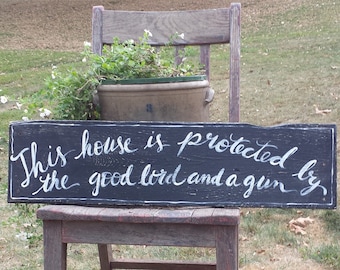 This house is protected by
the good lord and a gun